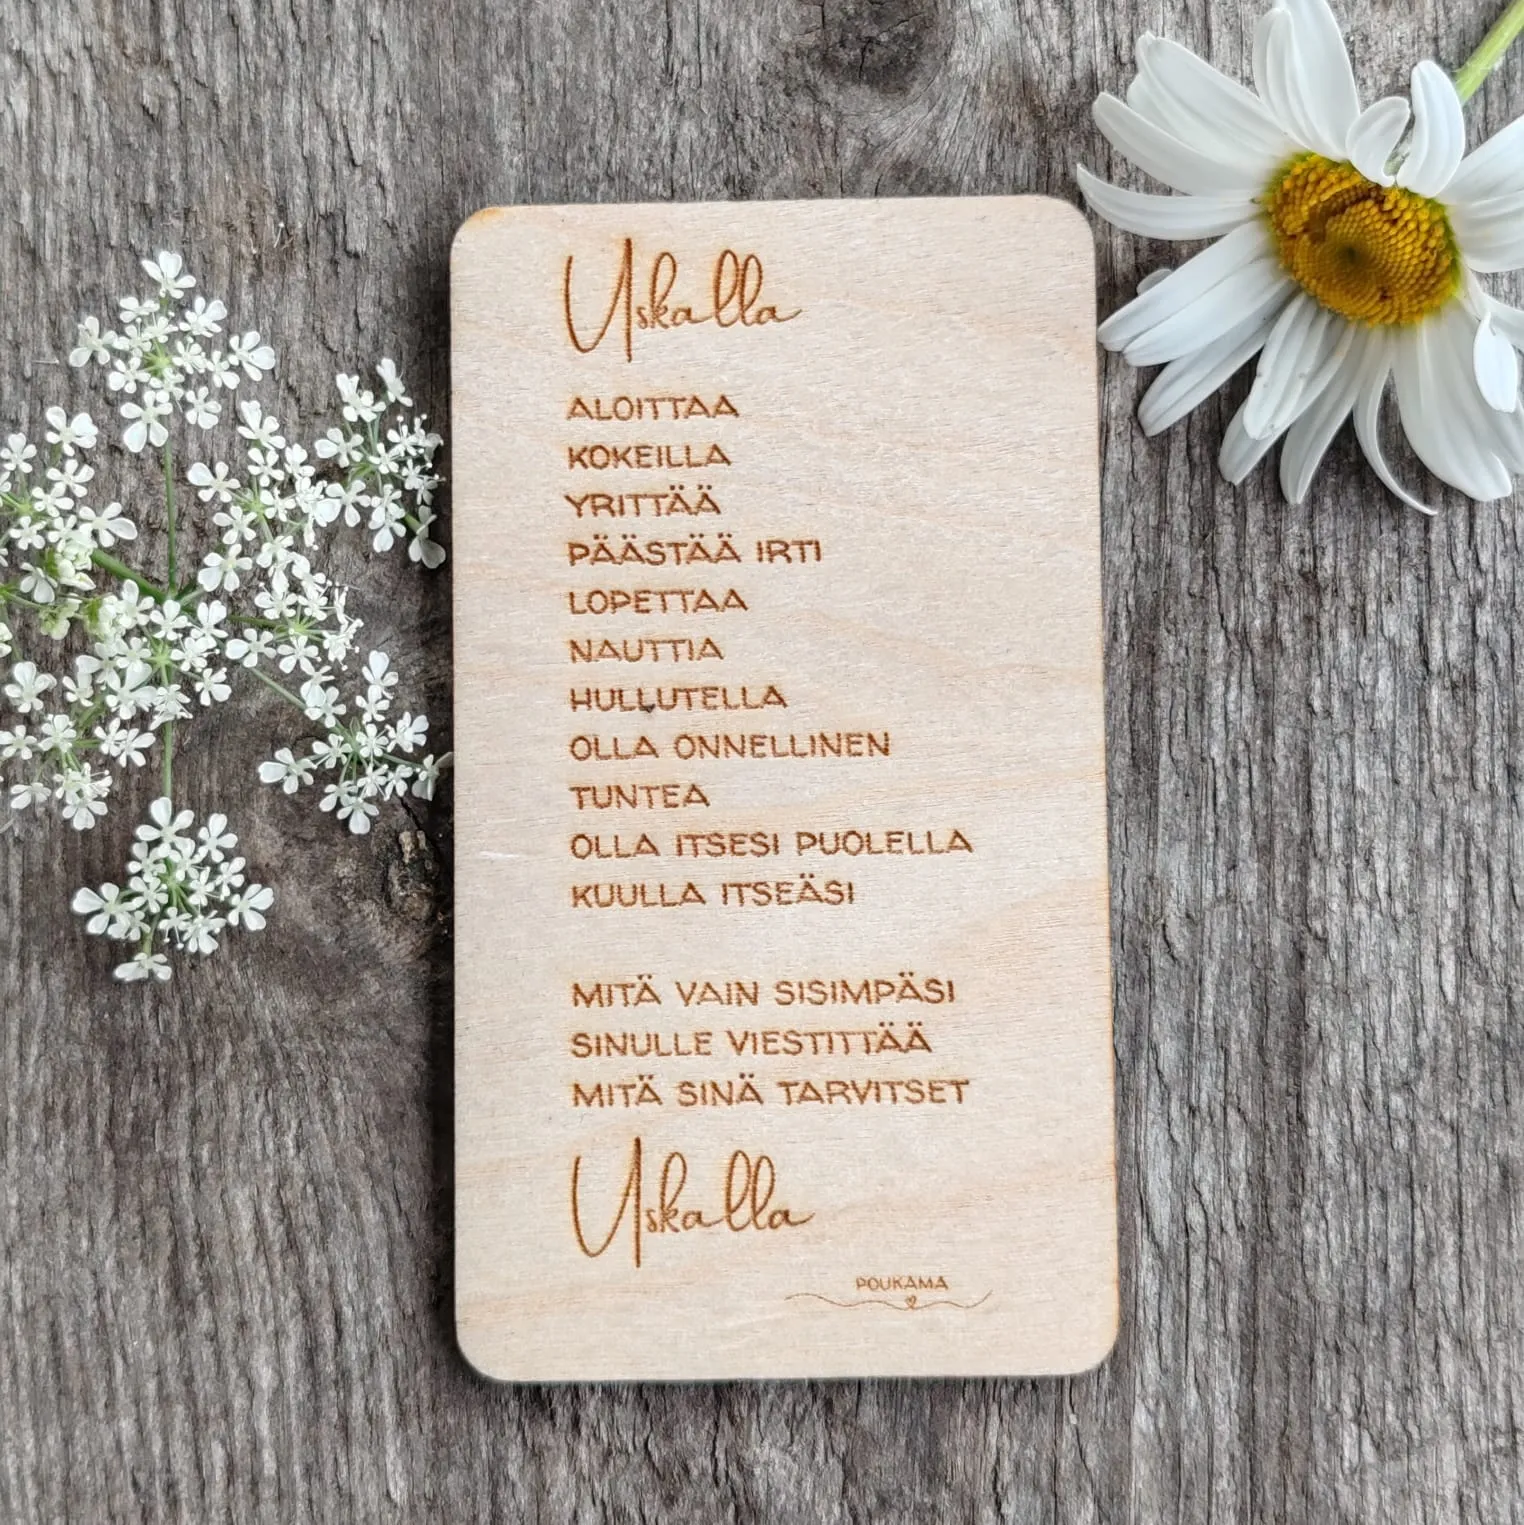 Uskalla
ALOITTAA
KOKEILLA
YRITTÄÄ
PÄÄSTÄÄ IRTI
LOPETTAA
NAUTTIA
HULLUTELLA
OLLA ONNELLINEN
TUNTEA
OLLA ITSESI PUOLELLA
KUULLA ITSEÄSI
MITÄ VAIN SISIMPÄSI
SINULLE VIESTITTÄÄ
MITÄ SINÄ TARVITSET
Uskalla
POUKAMA